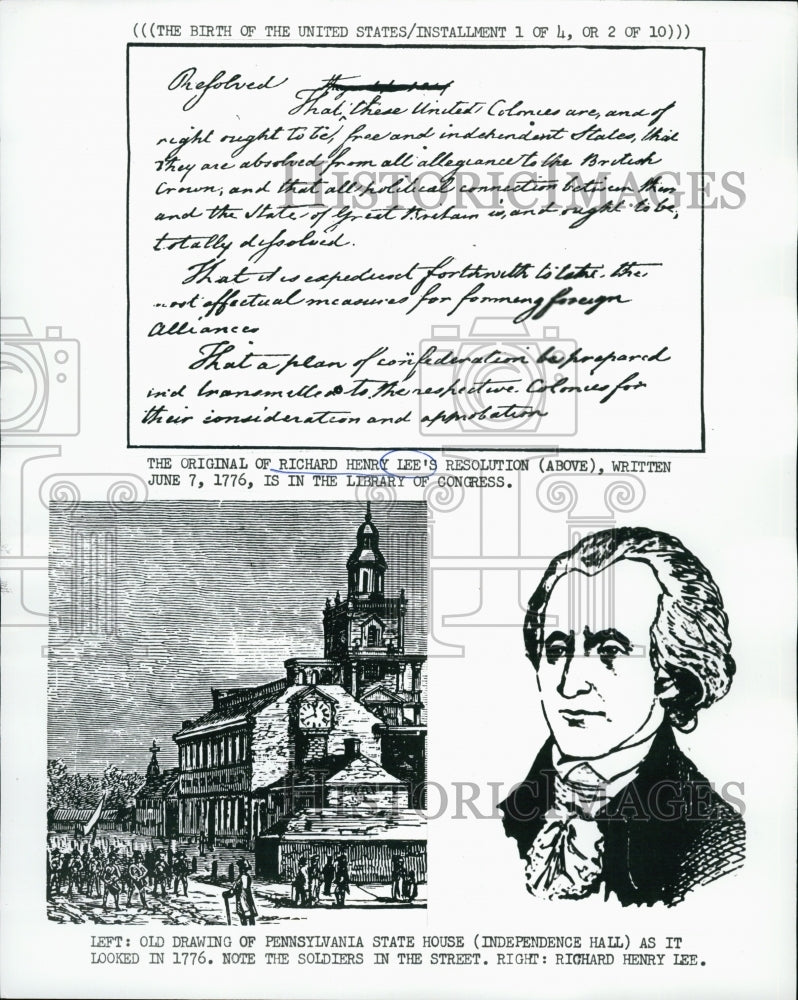 (((THE BIRTH OF THE UNITED STATES/INSTALLMENT 1 OF 4, OR 2 OF 10)))
Resolved
That these United Colonies are, and of
right ought to be, free and independent States, that
they are absolved from all allegiance to the British
Crown, and that all political connection between them
and the State of Great Britain is, and ought to be,
totally dissolved.
That it is expedient forthwith to take the
most effectual measures for forming foreign
Alliances
That a plan of confederation be prepared
and transmitted to the respective Colonies for
their consideration and approbation
HISTORIC IMAGES
THE ORIGINAL OF RICHARD HENRY LEE'S RESOLUTION (ABOVE), WRITTEN
JUNE 7, 1776, IS IN THE LIBRARY OF CONGRESS.
HISTORIC IMAGES
LEFT: OLD DRAWING OF PENNSYLVANIA STATE HOUSE (INDEPENDENCE HALL) AS IT
LOOKED IN 1776. NOTE THE SOLDIERS IN THE STREET. RIGHT: RICHARD HENRY LEE.